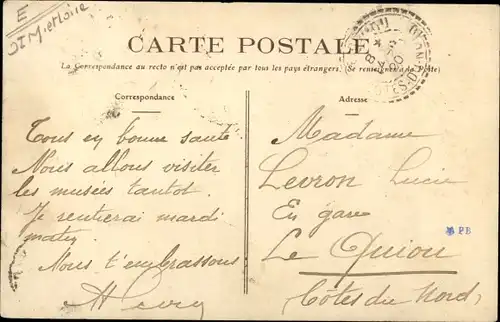 E
St M et Loire
CARTE POSTALE
La Correspondance au recto n'est pas acceptée par tous les pays étrangers. (Se renseigner à la Poste)
Correspondance
Tous en bonne santé
Nous allons visiter
les musées tantôt.
Je rentierai mardi
matin
Nous t'embrassons
Henry
Adresse
Madame
Levron Lucie
En gare
Le Quiou
Côtes du Nord
PB